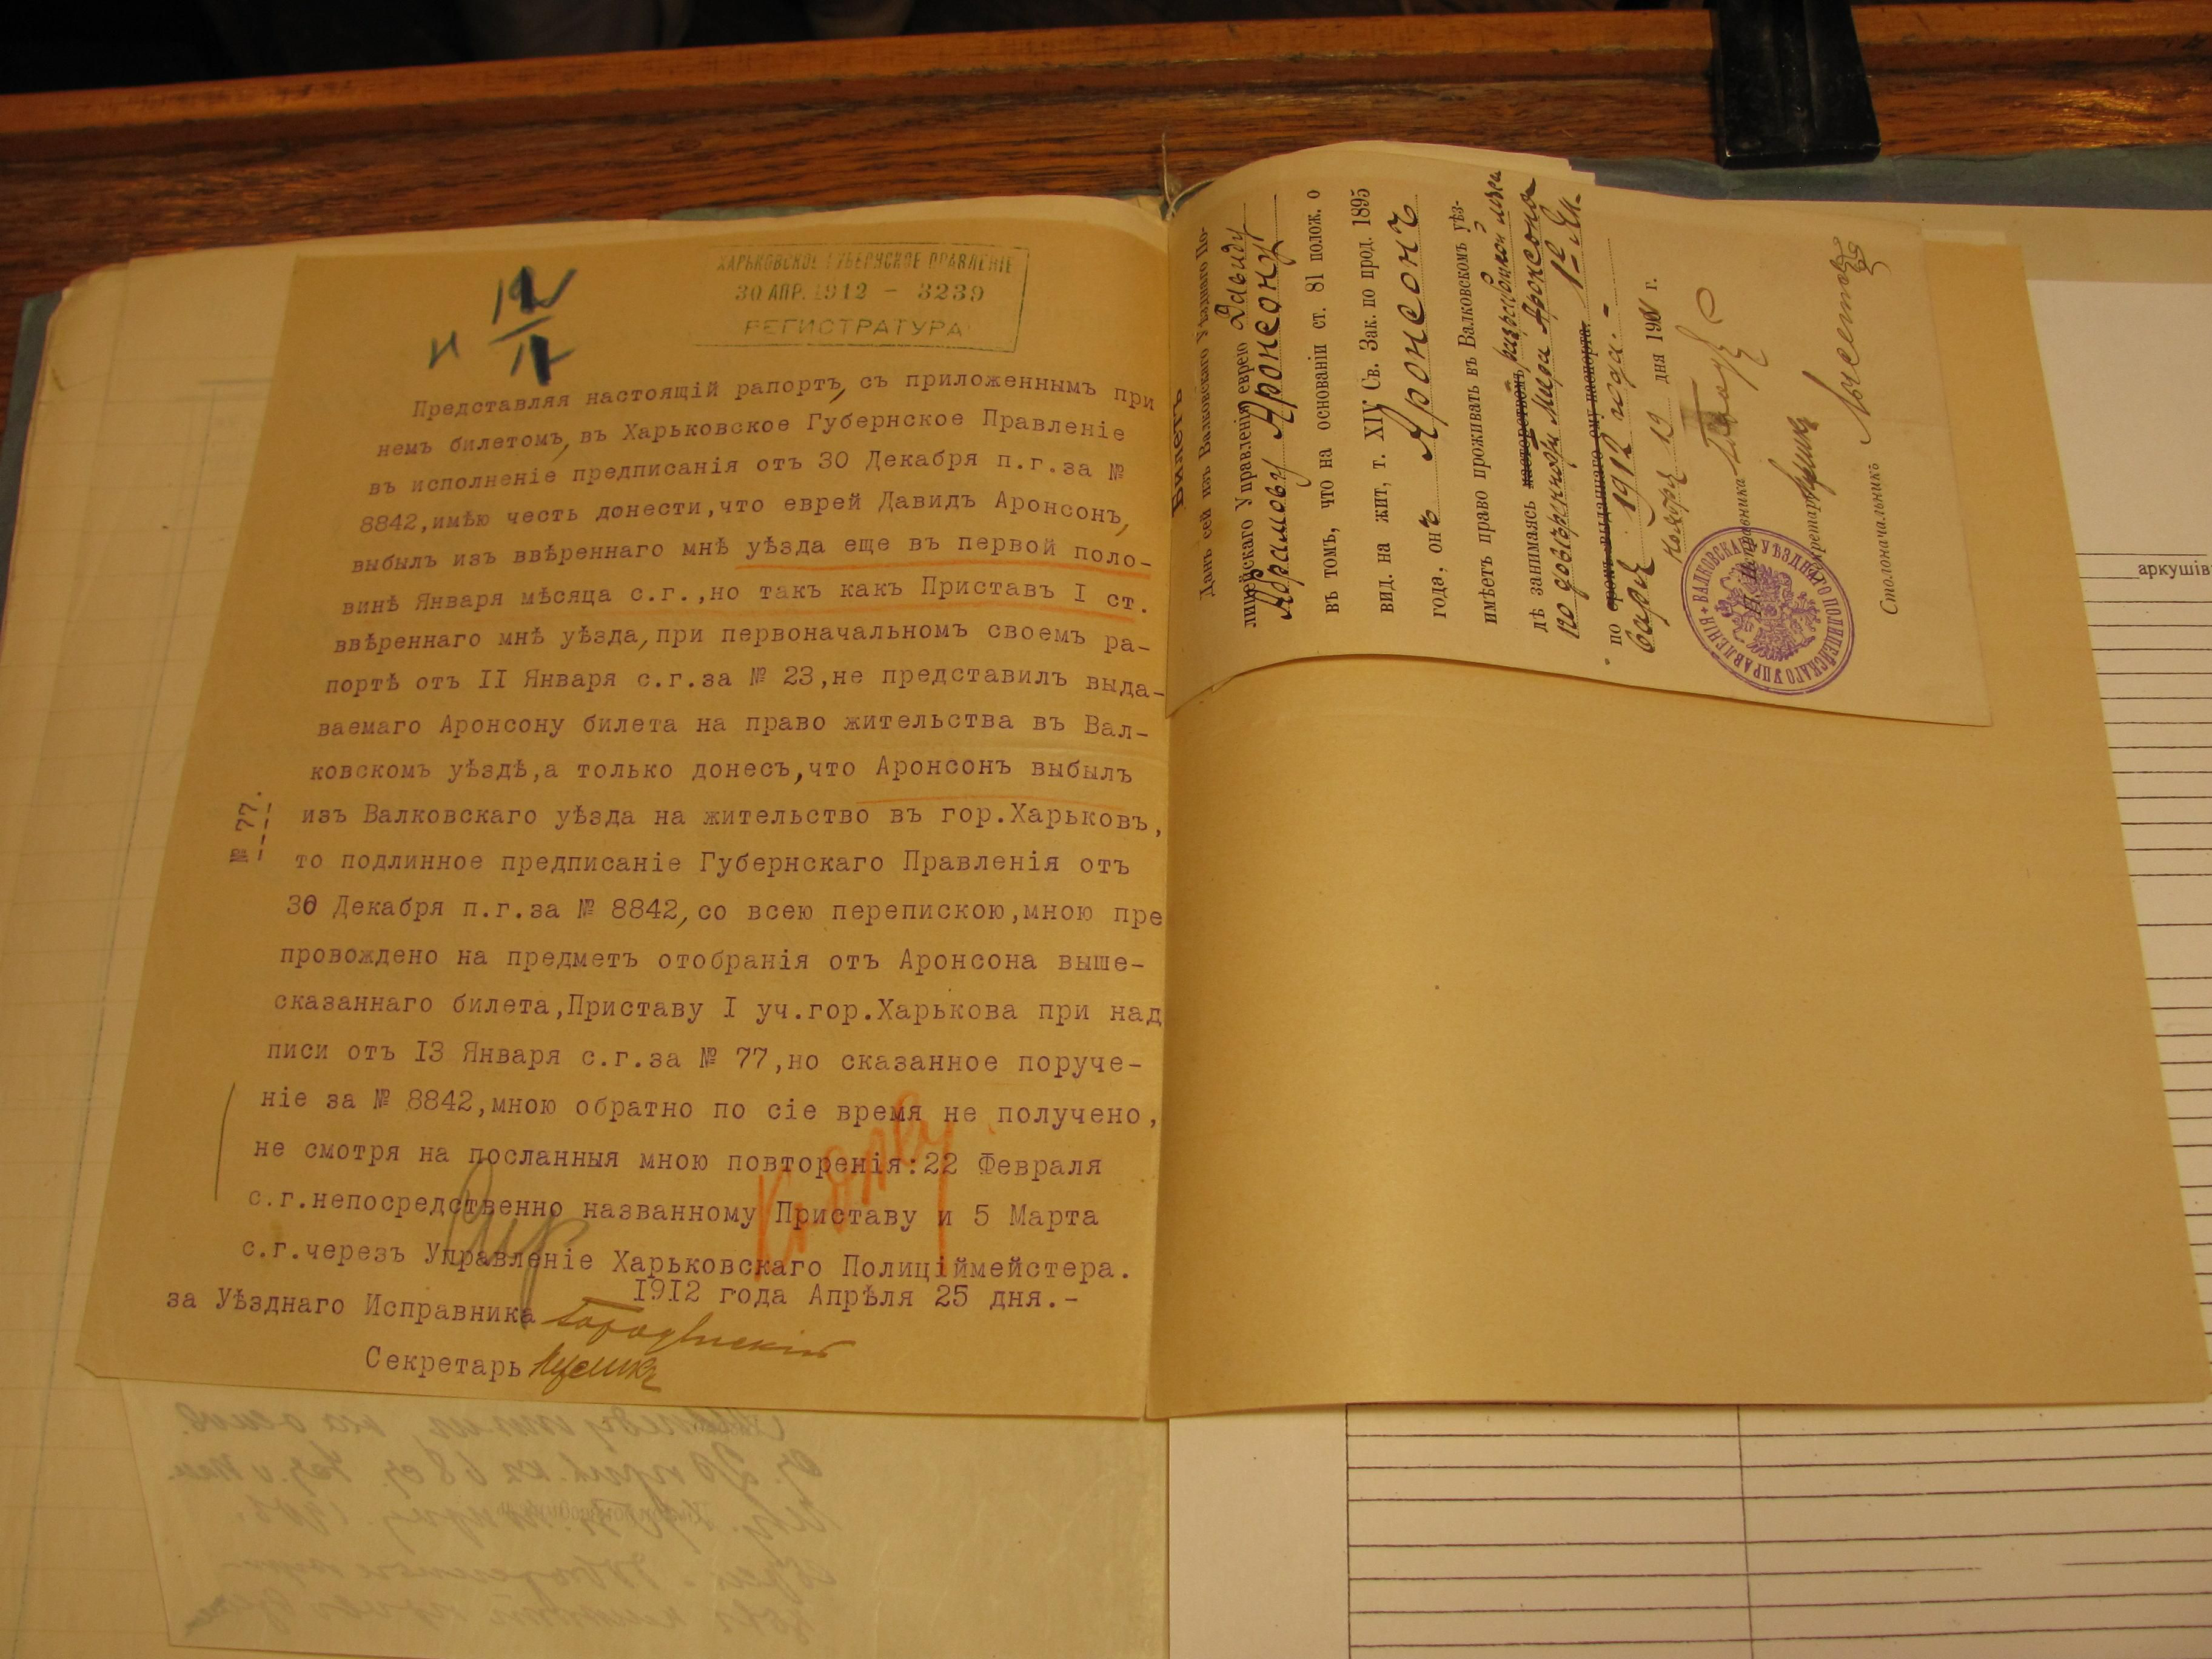 ХАРЬКОВСКОЕ ГУБЕРНСКОЕ ПРАВЛЕНІЕ
30 АПР. 1912 - 3239
РЕГИСТРАТУРА
Представляя настоящій рапортъ, съ приложеннымъ при
немъ билетомъ, въ Харьковское Губернское Правленіе
въ исполненіе предписанія отъ 30 Декабря п.г.за №
8842,имѣю честь донести,что еврей Давидъ Аронсонъ,
выбылъ изъ ввѣреннаго мнѣ уѣзда еще въ первой поло-
винѣ Января мѣсяца с.г.,но такъ какъ Приставъ I ст.
ввѣреннаго мнѣ уѣзда,при первоначальномъ своемъ ра-
портѣ отъ II Января с.г.за № 23,не представилъ выда-
ваемаго Аронсону билета на право жительства въ Вал-
ковскомъ уѣздѣ,а только донесъ,что Аронсонъ выбылъ
изъ Валковскаго уѣзда на жительство въ гор.Харьковъ,
то подлинное предписаніе Губернскаго Правленія отъ
30 Декабря п.г.за № 8842,со всею перепискою,мною пре
провождено на предметъ отобранія отъ Аронсона выше-
сказаннаго билета,Приставу I уч.гор.Харькова при над
писи отъ I3 Января с.г.за № 77,но сказанное поруче-
ніе за № 8842,мною обратно по сіе время не получено,
не смотря на посланныя мною повторенія:22 Февраля
с.г.непосредственно названному Приставу и 5 Марта
с.г.черезъ Управленіе Харьковскаго Полиціймейстера.
I9I2 года Апрѣля 25 дня.-
за Уѣзднаго Исправника
Секретарь
№ 77.
Билетъ
Данъ сей изъ Валковскаго Уѣзднаго По-
лицейскаго Управленія еврею Давиду
Абрамову Аронсону
въ томъ, что на основаніи ст. 81 полож. о
вид. на жит, т. XIV Св. Зак. по прод. 1895
года, онъ Аронсонъ
имѣетъ право проживать въ Валковскомъ уѣз-
дѣ занимаясь мастерствомъ
по довѣренности Аронсона
по срокъ выданнаго ему паспорта. 1е
1912 года.-
Ноября 19 дня 1911 г.
Исправника
Секретарь
Столоначальникъ
ВАЛКОВСКАГО УѢЗДНАГО ПОЛИЦЕЙСКАГО УПРАВЛЕНІЯ
аркушів